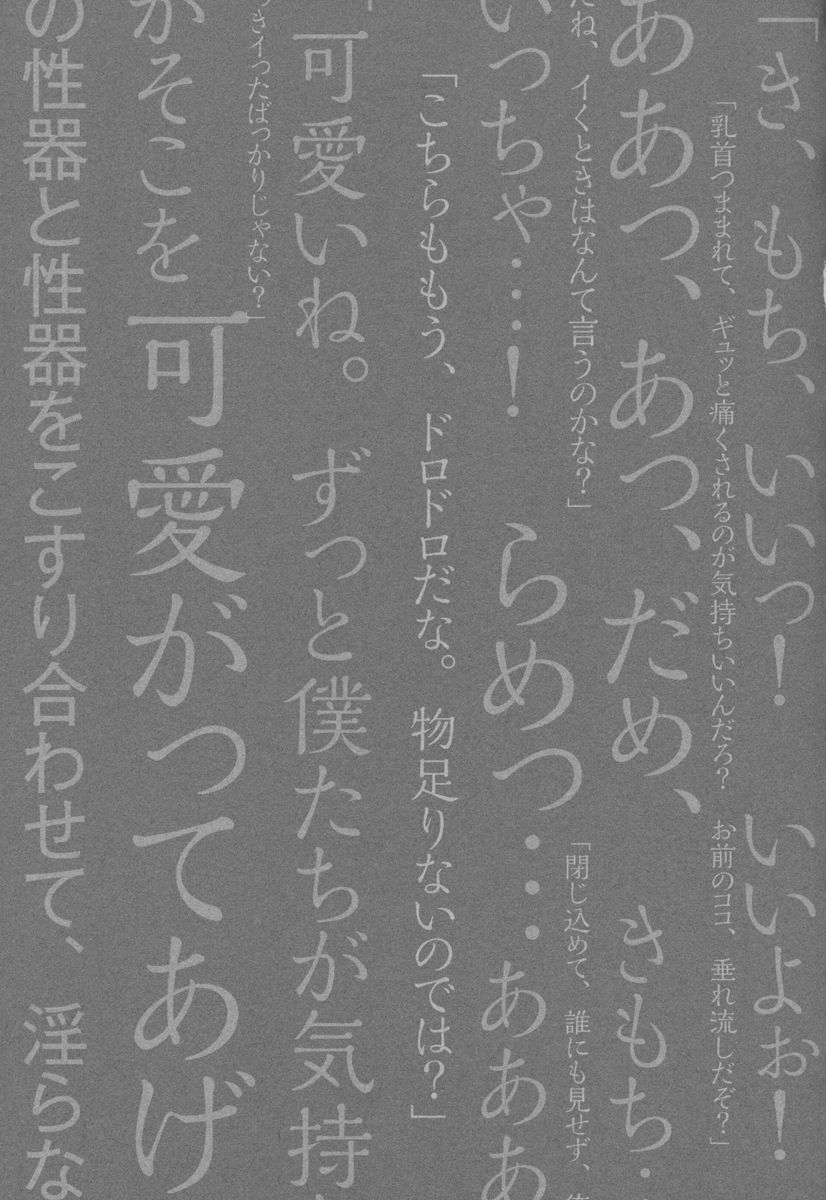 「き、もち、いいっ！　いいよぉ！
「乳首つままれて、ギュッと痛くされるのが気持ちいいんだろ？　お前のココ、垂れ流しだぞ？」
ああっ、あっ、だめ、　きもち・
だね、イくときはなんて言うのかな？」
「閉じ込めて、誰にも見せず、
いっちゃ…！　らめっ…あああ
「こちらももう、ドロドロだな。物足りないのでは？」
「可愛いね。ずっと僕たちが気持
っきイったばっかりじゃない？」
がそこを可愛がってあげ
の性器と性器をこすり合わせて、淫らな